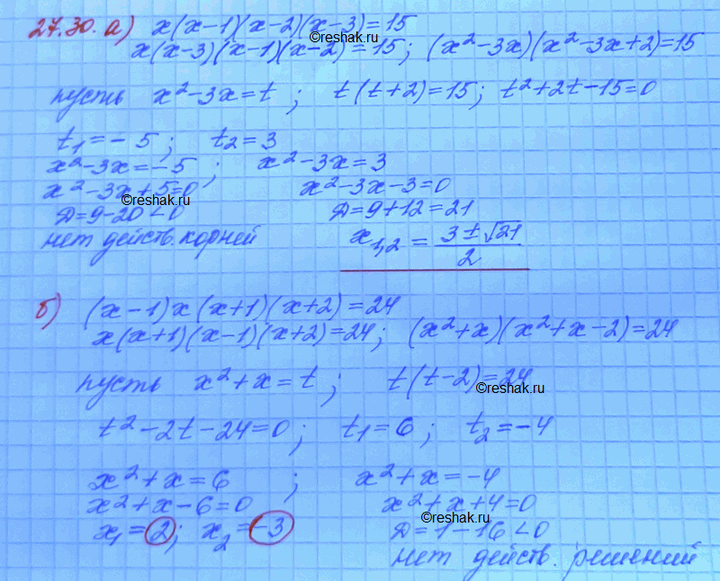 27.30. а) x(x-1)(x-2)(x-3)=15
©reshak.ru
x(x-3)(x-1)(x-2)=15; (x²-3x)(x²-3x+2)=15
©reshak.ru
пусть x²-3x=t; t(t+2)=15; t²+2t-15=0
t₁=-5; t₂=3
x²-3x=-5; x²-3x=3
x²-3x+5=0 x²-3x-3=0
©reshak.ru
Д=9-20<0 Д=9+12=21
нет действ. корней x₁,₂ = (3±√21)/2
б) (x-1)x(x+1)(x+2)=24
x(x+1)(x-1)(x+2)=24; (x²+x)(x²+x-2)=24
пусть x²+x=t; t(t-2)=24
©reshak.ru
t²-2t-24=0; t₁=6; t₂=-4
x²+x=6; x²+x=-4
x²+x-6=0 x²+x+4=0
©reshak.ru
x₁=2; x₂=-3 Д=1-16<0
нет действ. решений